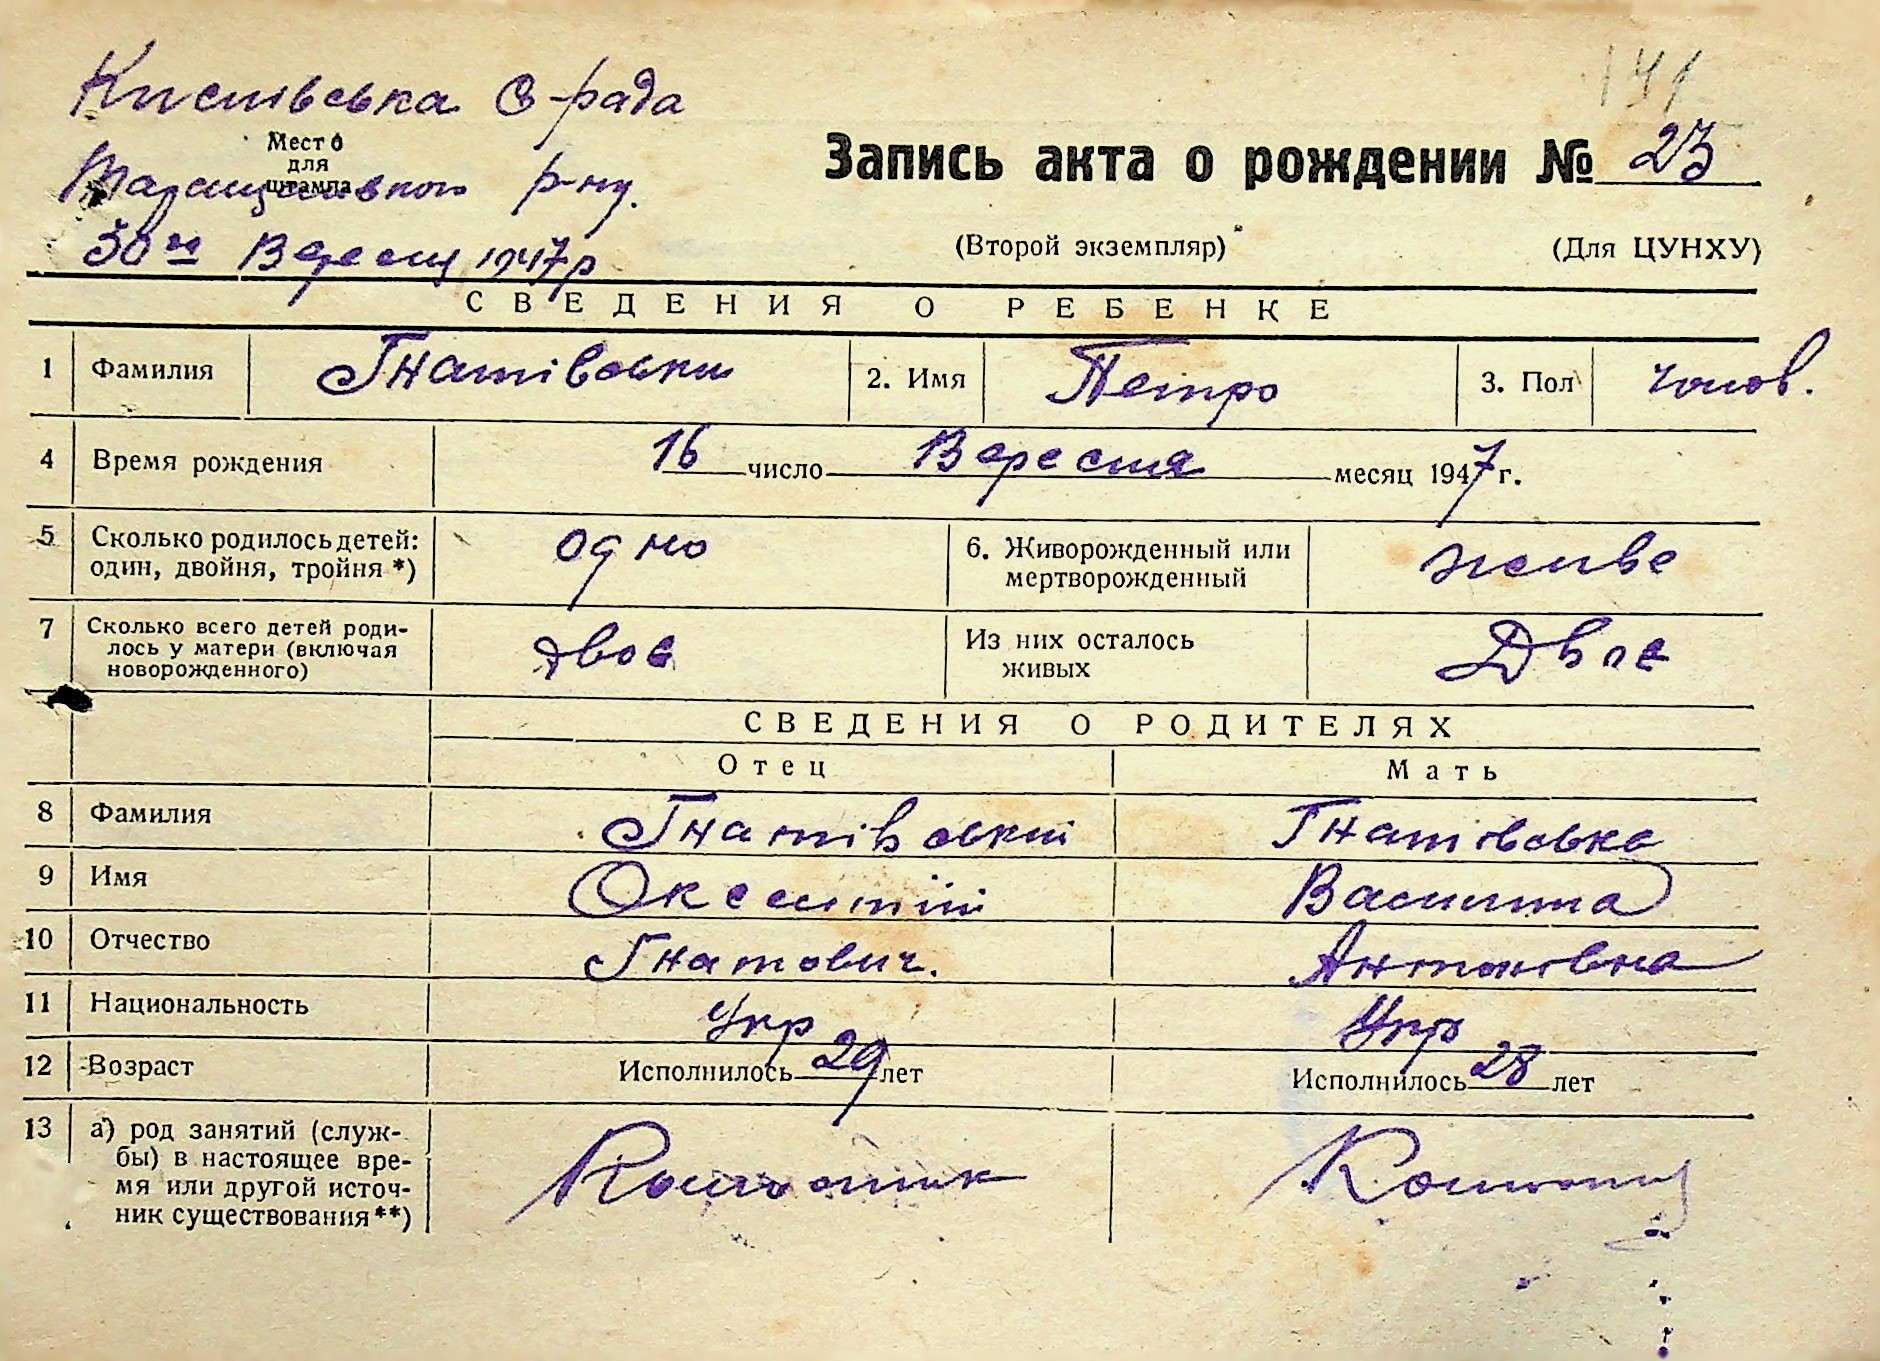 141
с-рада
Место
для
штампа
р-ну.
Запись акта о рождении № 23
30го Вересня 1947р
(Второй экземпляр)
(Для ЦУНХУ)
СВЕДЕНИЯ О РЕБЕНКЕ
1 Фамилия Гнатівськи 2. Имя Петро 3. Пол чолов.
4 Время рождения 16 число Вересня месяц 1947 г.
5 Сколько родилось детей: один, двойня, тройня *) одно 6. Живорожденный или мертворожденный живе
7 Сколько всего детей родилось у матери (включая новорожденного) двое Из них осталось живых Двое
СВЕДЕНИЯ О РОДИТЕЛЯХ
Отец Мать
8 Фамилия Гнатівський Гнатівська
9 Имя Оксентій Василина
10 Отчество Гнатович. Антонівна
11 Национальность Укр Укр
12 Возраст Исполнилось 29 лет Исполнилось 28 лет
13 а) род занятий (службы) в настоящее время или другой источник существования **)